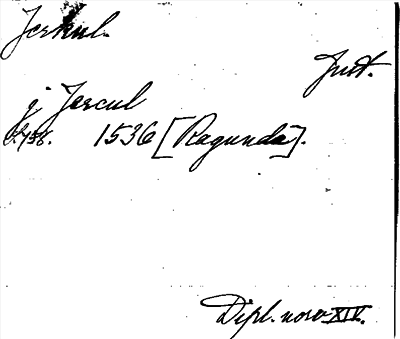 Jerkul.
Jmt.
j Jercul
1536 [Ragunda].
Dipl. norv XIV.